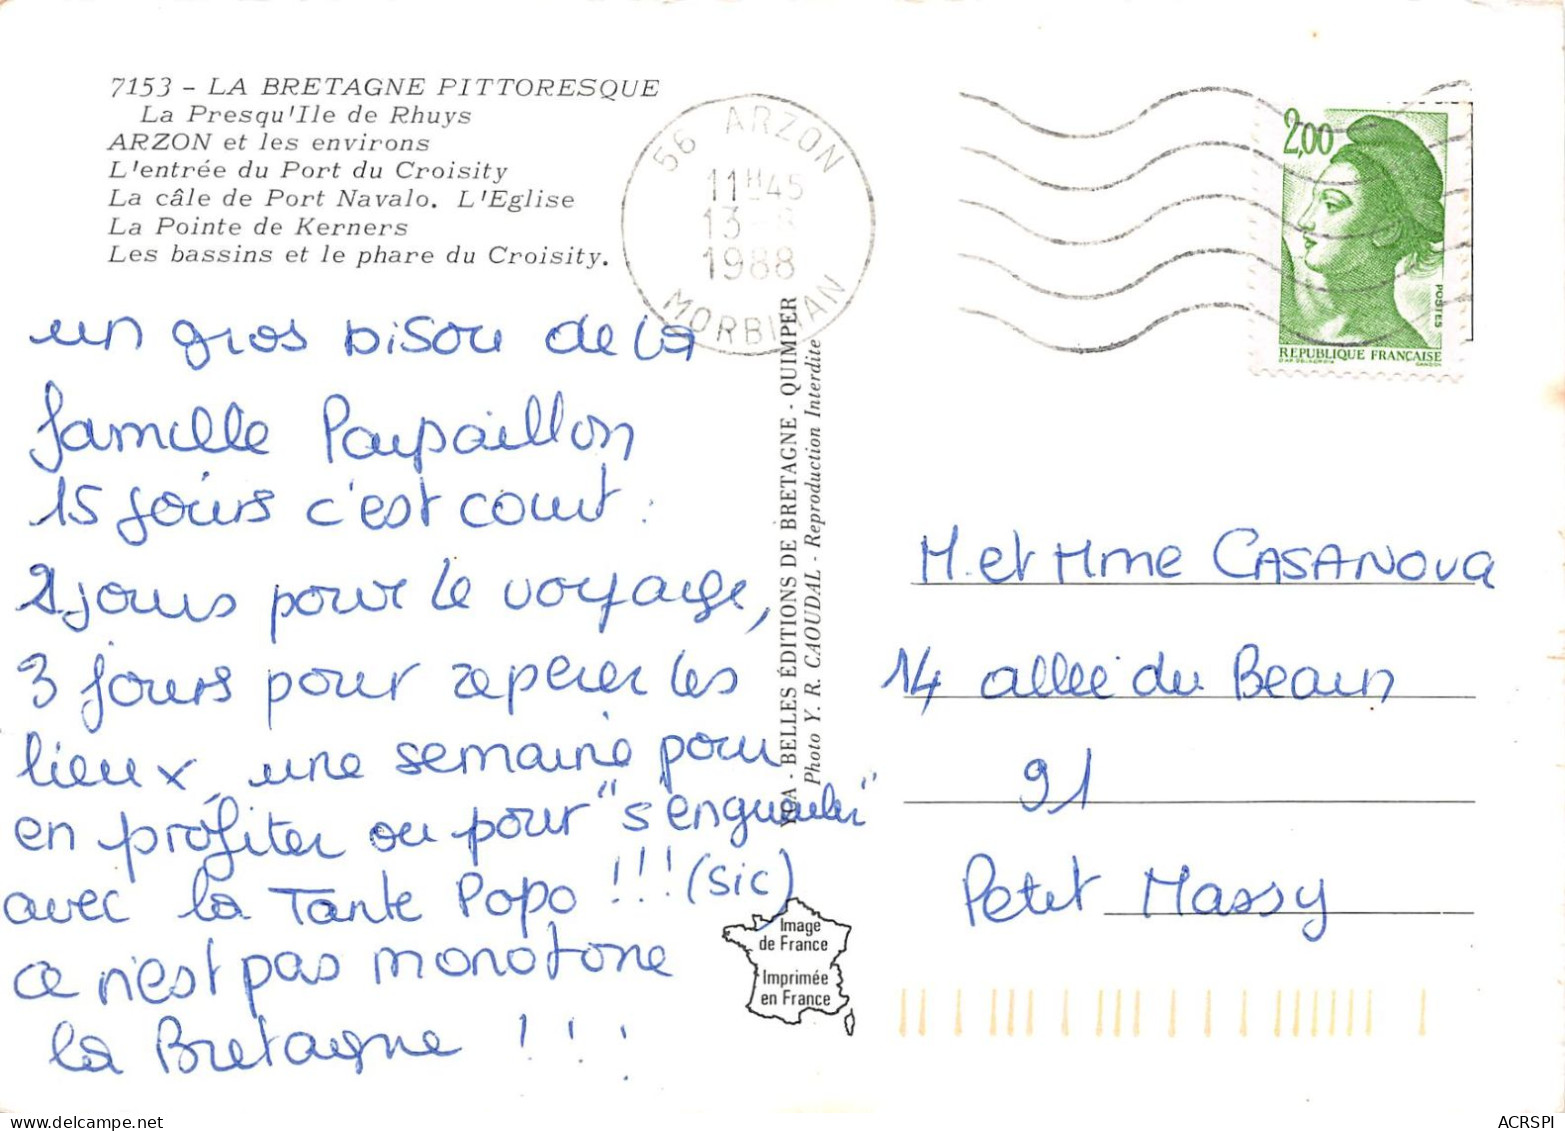 7153 - LA BRETAGNE PITTORESQUE
La Presqu'Ile de Rhuys
ARZON et les environs
L'entrée du Port du Croisity
La câle de Port Navalo. L'Eglise
La Pointe de Kerners
Les bassins et le phare du Croisity.
56 ARZON
11H45
13
1988
MORBIHAN
2,00
POSTES
REPUBLIQUE FRANÇAISE
un gros bisou de la
famille Paupaillon
15 jours c'est court :
2 jours pour le voyage,
3 jours pour repérer les
lieux, une semaine pour
en profiter ou pour "s'engueuler"
avec la Tante Popo !!! (sic)
ce n'est pas monotone
la Bretagne !!!
BELLES ÉDITIONS DE BRETAGNE - QUIMPER
Photo Y. R. CAOUDAL - Reproduction Interdite
M. et Mme CASANOVA
14 allée du Bearn
91
Petit Massy
Image
de France
Imprimée
en France
www.delcampe.net
ACRSPI